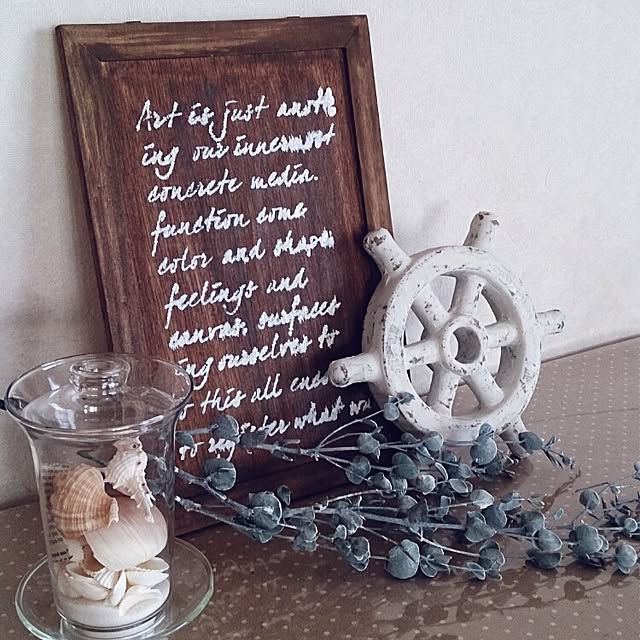 Art is just anoth
ing our innermost
concrete media.
function come
color and shape
feelings and
canvas, surfaces
ing ourselves to
this all ends
so